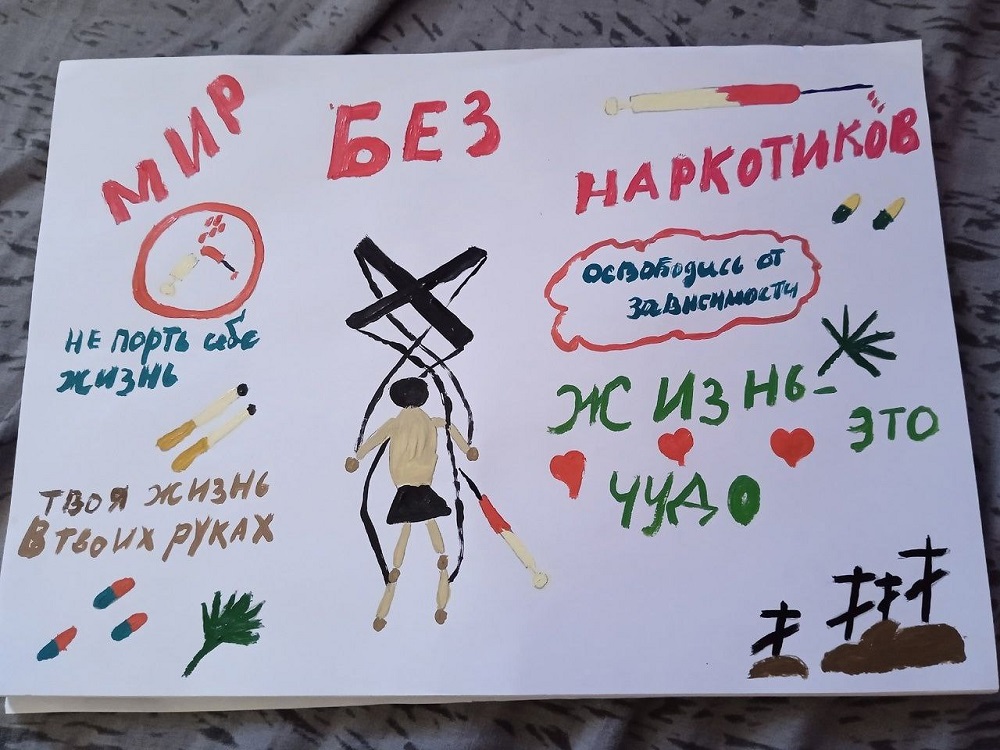 МИР БЕЗ НАРКОТИКОВ
НЕ ПОРТЬ себе
ЖИЗНЬ
ТВОЯ ЖИЗНЬ
В ТВОИХ РУКАХ
освободись от
зависимости
ЖИЗНЬ-
ЭТО
ЧУДО